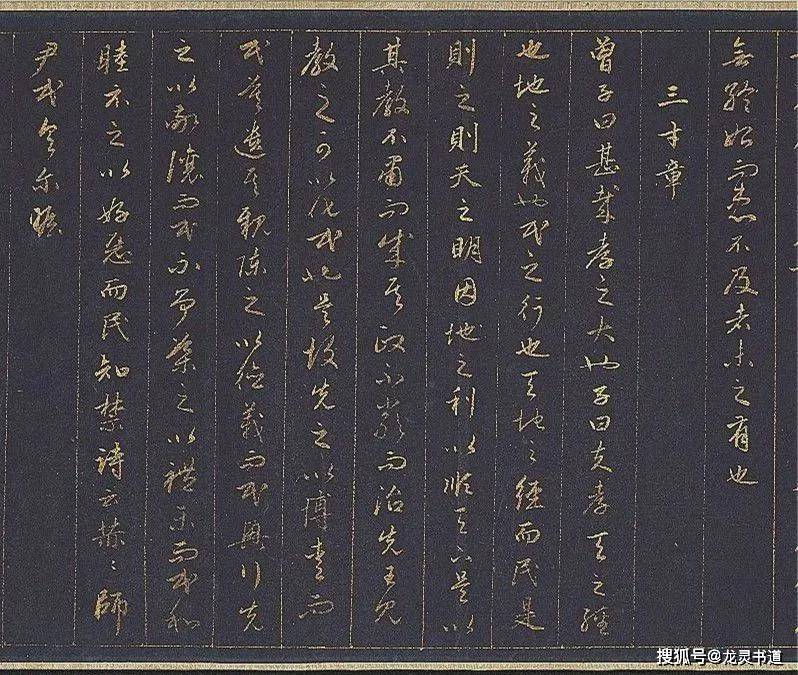 無終始而患不及者未之有也
三才章
曾子曰甚哉孝之大也子曰夫孝天之經
也地之義也民之行也天地之經而民是
則之則天之明因地之利以順天下是以
其教不肅而成其政不嚴而治先王見
教之可以化民也是故先之以博愛而
民莫遺其親陳之以德義而民興行先
之以敬讓而民不爭導之以禮樂而民和
睦示之以好惡而民知禁詩云赫〻師
尹民具爾瞻
搜狐号@龙灵书道